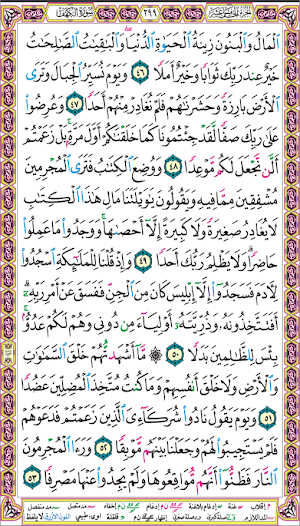 الجزء الخامس عشر ٢٩٩ سورة الكهف
ٱلْمَالُ وَٱلْبَنُونَ زِينَةُ ٱلْحَيَوٰةِ ٱلدُّنْيَا وَٱلْبَـٰقِيَـٰتُ ٱلصَّـٰلِحَـٰتُ
خَيْرٌ عِندَ رَبِّكَ ثَوَابًا وَخَيْرٌ أَمَلًا ٤٦ وَيَوْمَ نُسَيِّرُ ٱلْجِبَالَ وَتَرَى
ٱلْأَرْضَ بَارِزَةً وَحَشَرْنَـٰهُمْ فَلَمْ نُغَادِرْ مِنْهُمْ أَحَدًا ٤٧ وَعُرِضُوا۟
عَلَىٰ رَبِّكَ صَفًّا لَّقَدْ جِئْتُمُونَا كَمَا خَلَقْنَـٰكُمْ أَوَّلَ مَرَّةٍۭ بَلْ زَعَمْتُمْ
أَلَّن نَّجْعَلَ لَكُم مَّوْعِدًا ٤٨ وَوُضِعَ ٱلْكِتَـٰبُ فَتَرَى ٱلْمُجْرِمِينَ
مُشْفِقِينَ مِمَّا فِيهِ وَيَقُولُونَ يَـٰوَيْلَتَنَا مَالِ هَـٰذَا ٱلْكِتَـٰبِ
لَا يُغَادِرُ صَغِيرَةً وَلَا كَبِيرَةً إِلَّآ أَحْصَىٰهَا ۚ وَوَجَدُوا۟ مَا عَمِلُوا۟
حَاضِرًا ۗ وَلَا يَظْلِمُ رَبُّكَ أَحَدًا ٤٩ وَإِذْ قُلْنَا لِلْمَلَـٰٓئِكَةِ ٱسْجُدُوا۟
لِـَٔادَمَ فَسَجَدُوٓا۟ إِلَّآ إِبْلِيسَ كَانَ مِنَ ٱلْجِنِّ فَفَسَقَ عَنْ أَمْرِ رَبِّهِۦٓ ۗ
أَفَتَتَّخِذُونَهُۥ وَذُرِّيَّتَهُۥٓ أَوْلِيَآءَ مِن دُونِى وَهُمْ لَكُمْ عَدُوٌّۢ ۚ
بِئْسَ لِلظَّـٰلِمِينَ بَدَلًا ٥٠ ۞ مَّآ أَشْهَدتُّهُمْ خَلْقَ ٱلسَّمَـٰوَٰتِ
وَٱلْأَرْضِ وَلَا خَلْقَ أَنفُسِهِمْ وَمَا كُنتُ مُتَّخِذَ ٱلْمُضِلِّينَ عَضُدًا
٥١ وَيَوْمَ يَقُولُ نَادُوا۟ شُرَكَآءِىَ ٱلَّذِينَ زَعَمْتُمْ فَدَعَوْهُمْ
فَلَمْ يَسْتَجِيبُوا۟ لَهُمْ وَجَعَلْنَا بَيْنَهُم مَّوْبِقًا ٥٢ وَرَءَا ٱلْمُجْرِمُونَ
ٱلنَّارَ فَظَنُّوٓا۟ أَنَّهُم مُّوَاقِعُوهَا وَلَمْ يَجِدُوا۟ عَنْهَا مَصْرِفًا ٥٣